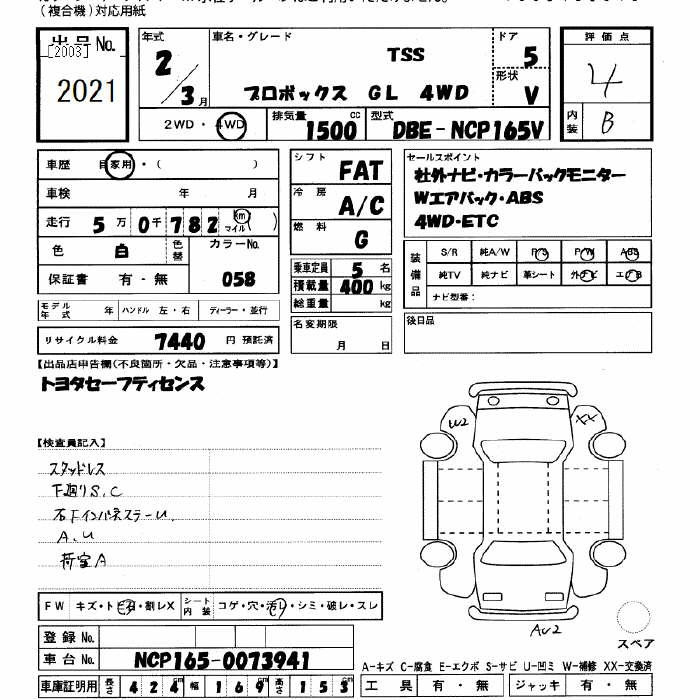 (複合機)対応用紙
出品No.
[2003]
2021
年式
2/3月
車名・グレード
TSS
プロボックス GL 4WD
ドア
5
形状
V
評価点
4
内装
B
2WD・4WD
排気量
1500 cc
型式
DBE-NCP165V
車歴 自家用・( )
車検 年 月
走行 5万0千782 km マイル( )
色 白 色替
カラーNo.
058
保証書 有・無
モデル年式 年 ハンドル 左・右 ディーラー・並行
リサイクル料金 7440 円 預託済
シフト
FAT
冷房
A/C
燃料
G
乗車定員 5 名
積載量 400 kg
総重量 kg
名変期限
月 日
セールスポイント
社外ナビ・カラーバックモニター
Wエアバック・ABS
4WD・ETC
装備品
S/R 純A/W P/S P/W ABS
純TV 純ナビ 革シート 外ナビ エアB
ナビ型番:
後日品
【出品店申告欄(不良箇所・欠品・注意事項等)】
トヨタセーフティセンス
【検査員記入】
スタッドレス
下廻りS.C
右FインパネステーU.
A.U
荷室A
W2
XX
AU2
スペア
FW キズ・トビ石・割レX
シート内装 コゲ・穴・汚レ・シミ・破レ・スレ
登録No.
車台No. NCP165-0073941
車庫証明用 長さ 424cm 幅 169cm 高さ 153cm
A-キズ C-腐食 E-エクボ S-サビ U-凹ミ W-補修 XX-交換済
工具 有・無 ジャッキ 有・無